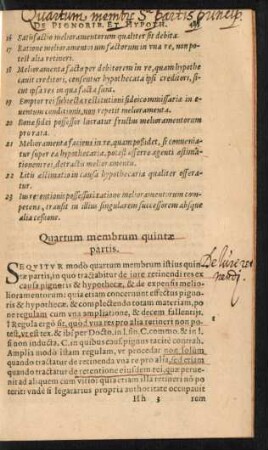 Quartum membrũ 5 partis princip.
DE PIGNORIB. ET HYPOTH.
16 Satisfactio melioramentorum qualiter sit debita.
17 Ratione melioramentorum factorum in vna re, non potest alia retineri.
18 Melioramenta facta per debitorem in re, quam hypothecauit creditori, censentur hypothecata ipsi creditori, sicut ipsa res in qua facta sunt.
19 Emptor rei subiecta restitutioni fideicommissaria in euentum conditionis, non repetit melioramenta.
20 Bona fidei possessor lucratur fructus melioramentorum pro rata.
21 Melioramenta faciens in re, quam possidet, si conueniatur super ea hypothecaria, potest offerre agenti astimationem rei, detracto melioramento.
22 Litis estimatio in causa hypothecaria qualiter efferatur.
23 Ius retentionis possessori ratione melioramentorum competens, transit in illius singularem successorem absque alia cessione.
Quartum membrum quintæ
partis.
De iure retinendi
SEQVITVR modò quartum membrum istius quin
tæ partis, in quo tractabitur de iure retinendi res ex
causa pignoris & hypothecæ, & de expensis melio-
lioramentorum: quia etiam concernunt effectus pigno-
ris & hypothecæ, & complectendo totam materiam, po
ne regulam cum vna ampliatione, & decem fallentijs.
1 Regula ergo sit, quod vna res pro alia retineri non po-
test, vt est tex. & ibi per Docto. in l. fin. C. commo. & in l.
si non inducta. C. in quibus caus pignus tacitè contrah.
Amplia modò istam regulam, vt procedat non solùm
quando tractatur de retinenda vna re pro alia, sed etiam
quando tractatur de retentione eiusdem rei, quæ perue-
nit ad aliquem cum vitio: quia etiam cum vitio nõ poterit
retineri vnde si legatarius propria authoritate occupauit
Hh 3 rem